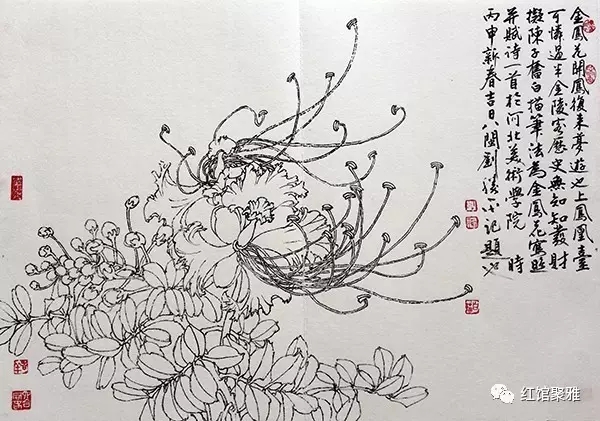 金鳳花開鳳復來夢遊池上鳳凰臺
可憐過半金陵客歷史無知知發財
擬陳子奮白描筆法為金鳳花寫照
并賦詩一首於河北美術學院 時
丙申新春吉日八閩劉記題
红馆聚雅